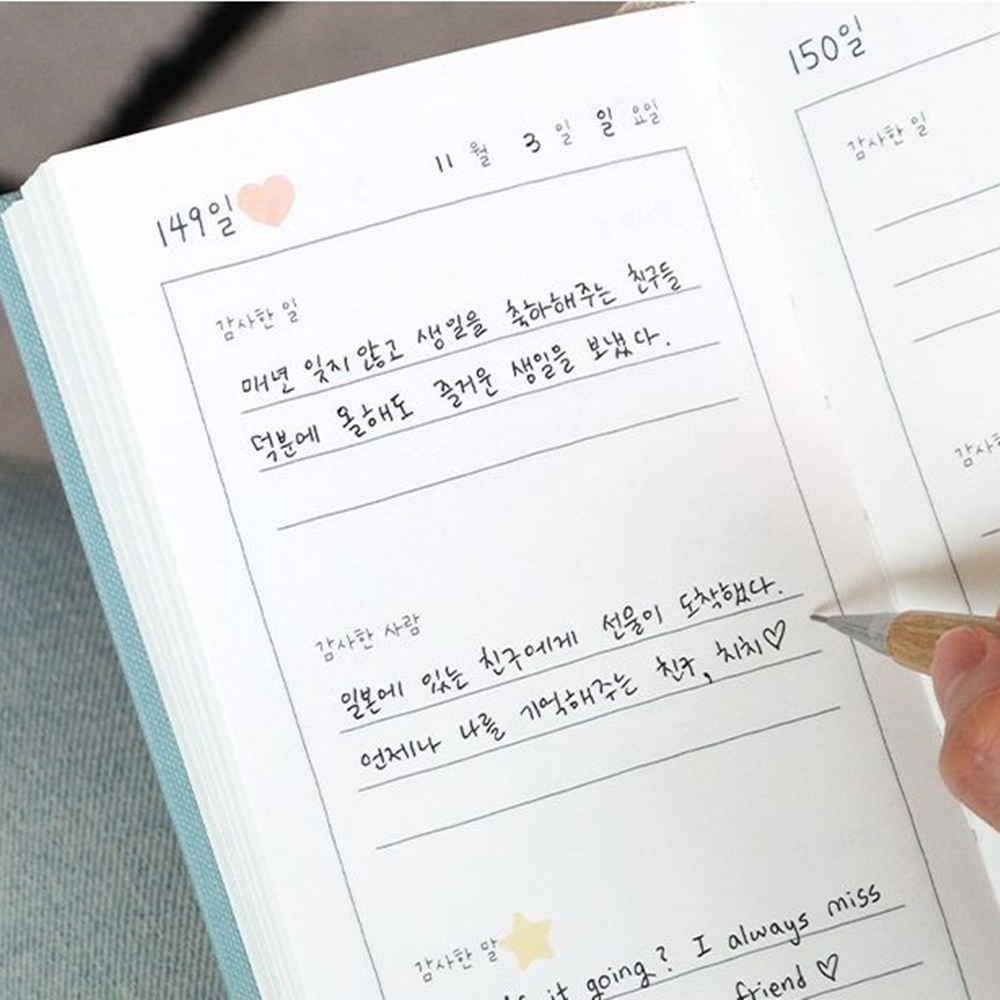 149일
11 월 3 일 일 요일
감사한 일
매년 잊지 않고 생일을 축하해주는 친구들
덕분에 올해도 즐거운 생일을 보냈다.
감사한 사람
일본에 있는 친구에게 선물이 도착했다.
언제나 나를 기억해주는 친구, 치치♡
감사한 말
it going? I always miss
friend ♡
150일
감사한 일
감사한